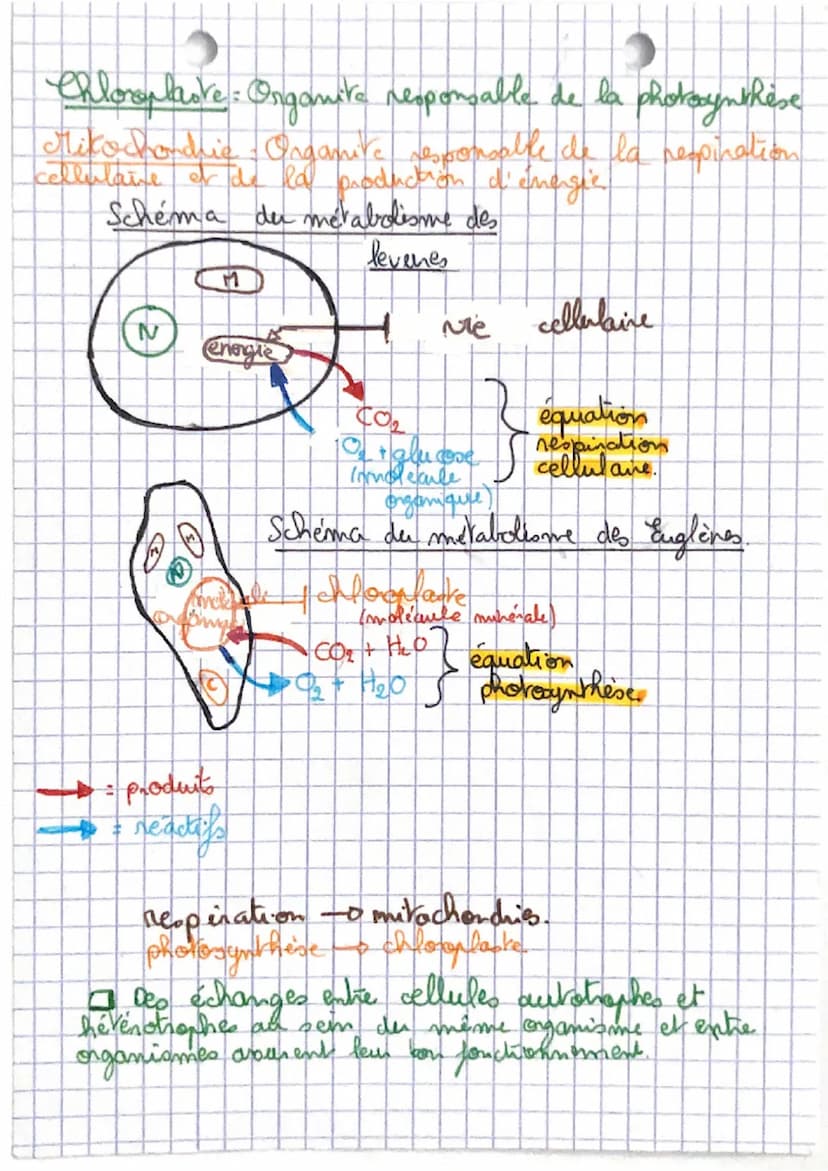 Chloroplaste : Organite responsable de la photosynthèse
Mitochondrie : Organite responsable de la respiration
cellulaire et de la production d'énergie.
Schéma du métabolisme des
levures
M
N
énergie
vie cellulaire
CO₂
O₂ + glucose
(molécule
organique)
équation
respiration
cellulaire.
Schéma du métabolisme des Euglènes.
M
M
N
chloroplaste
(molécule minérale)
CO₂ + H₂O
O₂ + H₂O
équation
photosynthèse.
C
= produits
= réactifs
respiration → mitochondries.
photosynthèse → chloroplaste
Des échanges entre cellules autotrophes et
hétérotrophes au sein du même organisme et entre
organismes assurent leur bon fonctionnement.